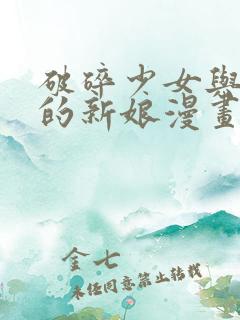 破碎少女與
的新娘漫畫
金七
未經同意禁止轉載